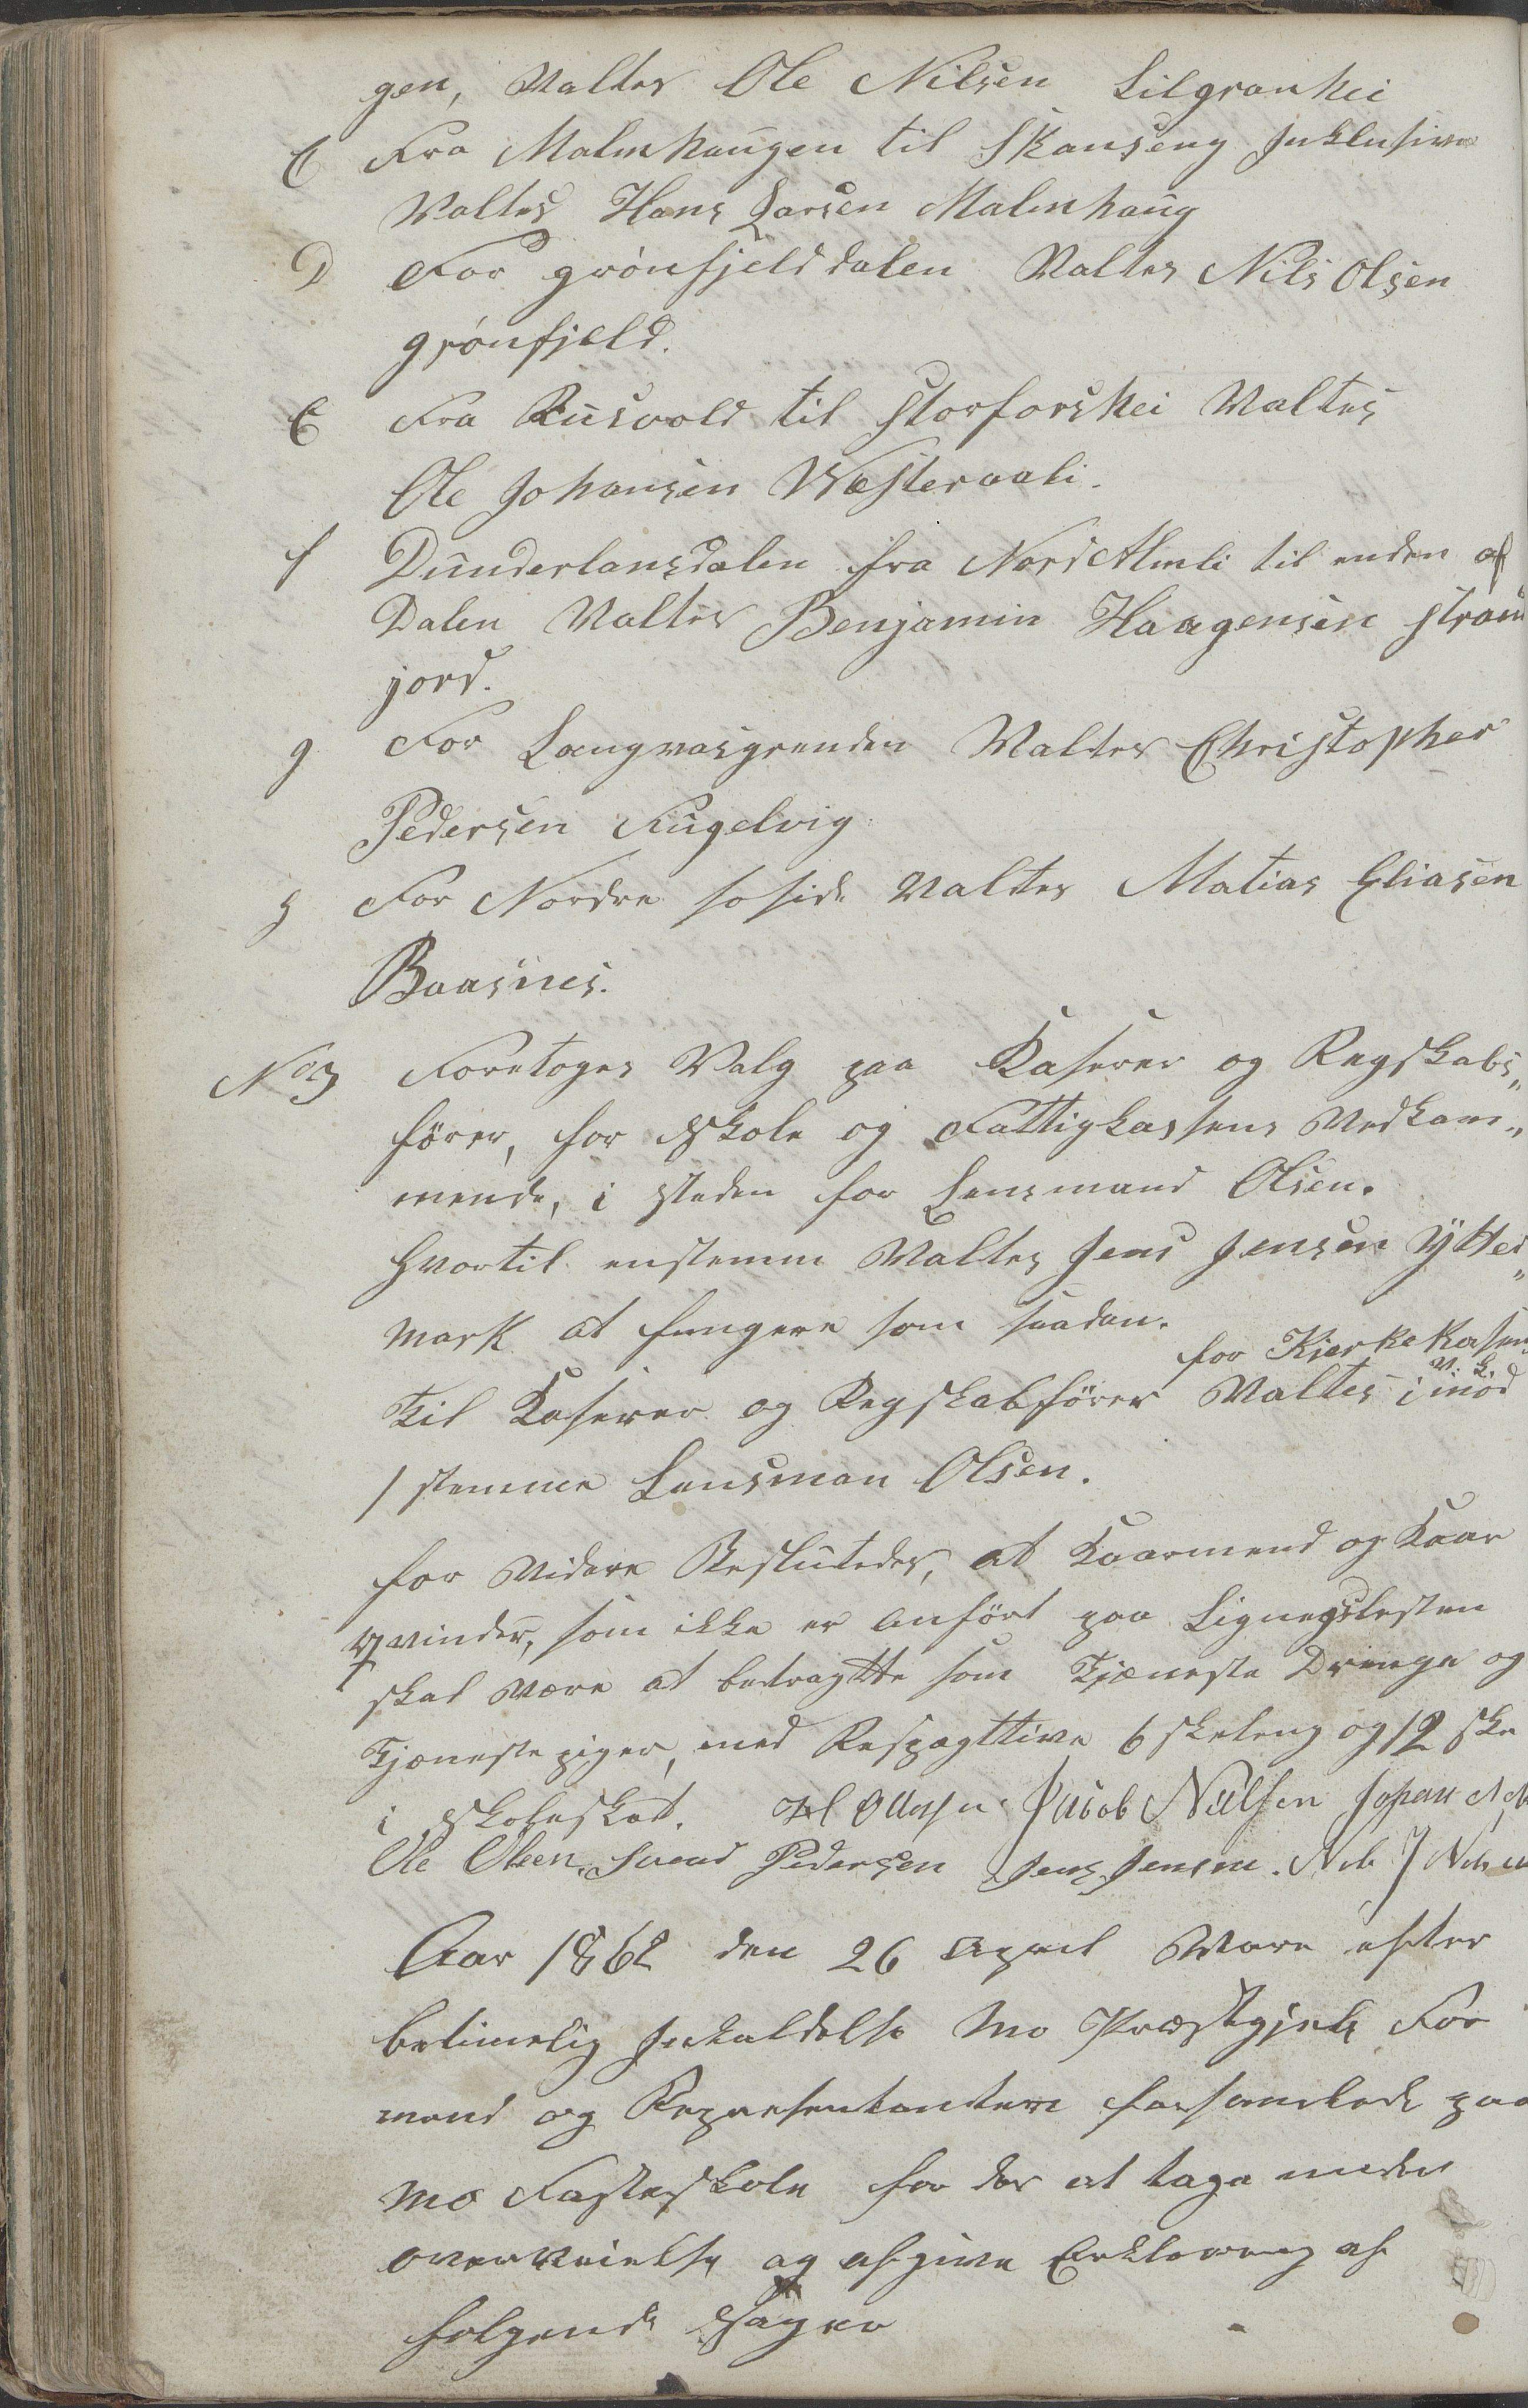 gen, Valtes Ole Nilsen Lilgranhei
C Fra Malmhaugen til Skanseng Inklusive
Valtes Hans Larsen Malmhaug
D For grönfjelddalen Valtes Nils Olsen
grönfjeld.
E Fra Rusvold til Storforshei Valtes
Ole Johansen Westeraali.
f Dunderlansdalen fra Nord Almli til enden af
Dalen Valtes Benjamin Haagensen Strand
jord.
g For Langvasgrenden Valtes Christopher
Pedersen Fugelvig
h For Nordre soside Valtes Matias Eliasen
Baasnes.
No 3 Foretoges Valg paa Kaserer og Regskabs„
förer, for Skole og Fattigkassens Vedkom„
mende, i steden for Lensmand Olsen.
Hvortil enstemm Valtes Jens Jensen Ytter„
mark at fungere som saadan.
for Kierkekasens
V. k.
til Kaserer og Regskabförer Valtes imod
1 stemme Lensman Olsen.
for Videre Beslutedes, at Kaarmend og Kaar
qvinder, som ikke er anfört paa Lignegslesten
skal være at betragtte som Tjæneste Drenge og
Tjænestepiger, med Respegttive 6 skeleng og 12 ske
i skoleskat. Jacob Nielsen Johan
Ole Olsen. Svend Pedersen Jens Jensen. Nils J Nilsen
Aar 1862 den 26 April Vare efter
betimelig Inkaldelse Mo Præstgjels For
mend og Representantere forsamlede paa
Mo Fasteskole for der at tage under
overveielse og afgive Erklereng af
folgende Sager